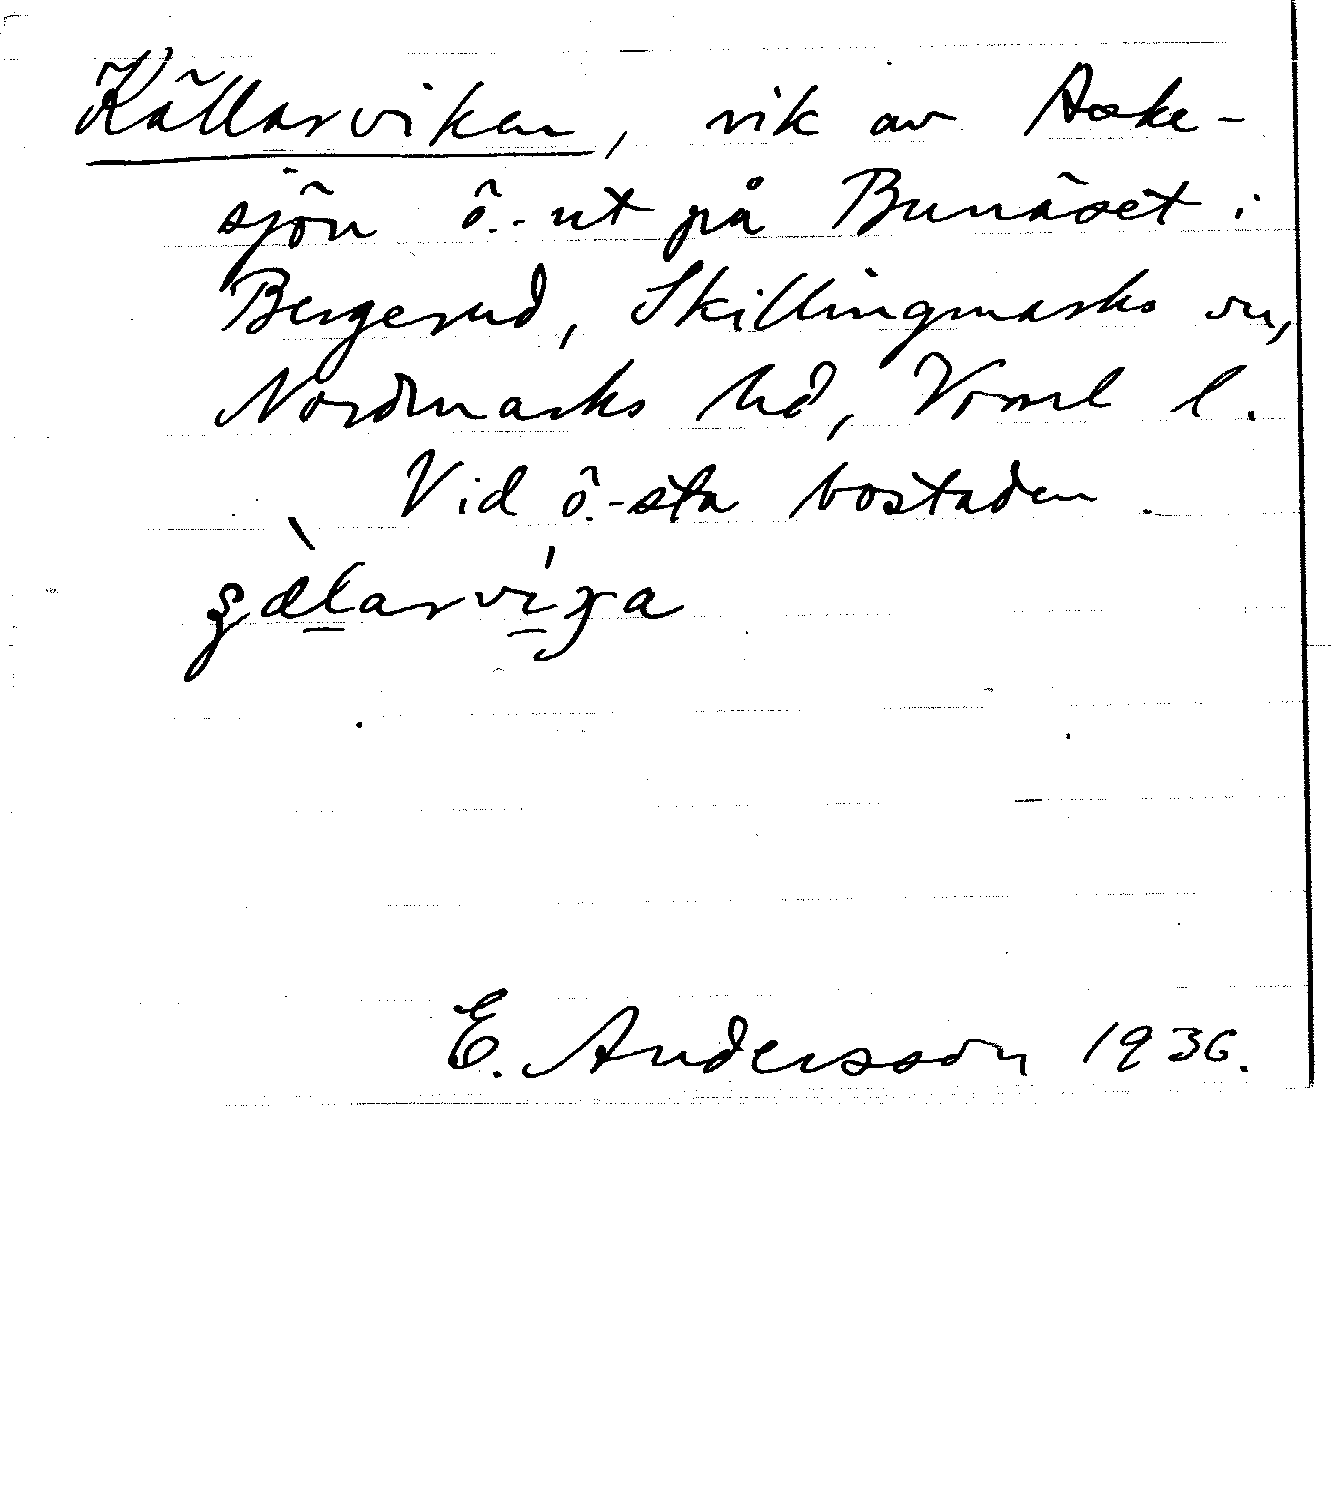 Källarviken, vik av Aske-
sjön ö.-ut på Bunäset i
Bergerud, Skillingmarks sn,
Nordmarks hd, Vrml l.
Vid ö.-sta bostaden.
E. Andersson 1936.